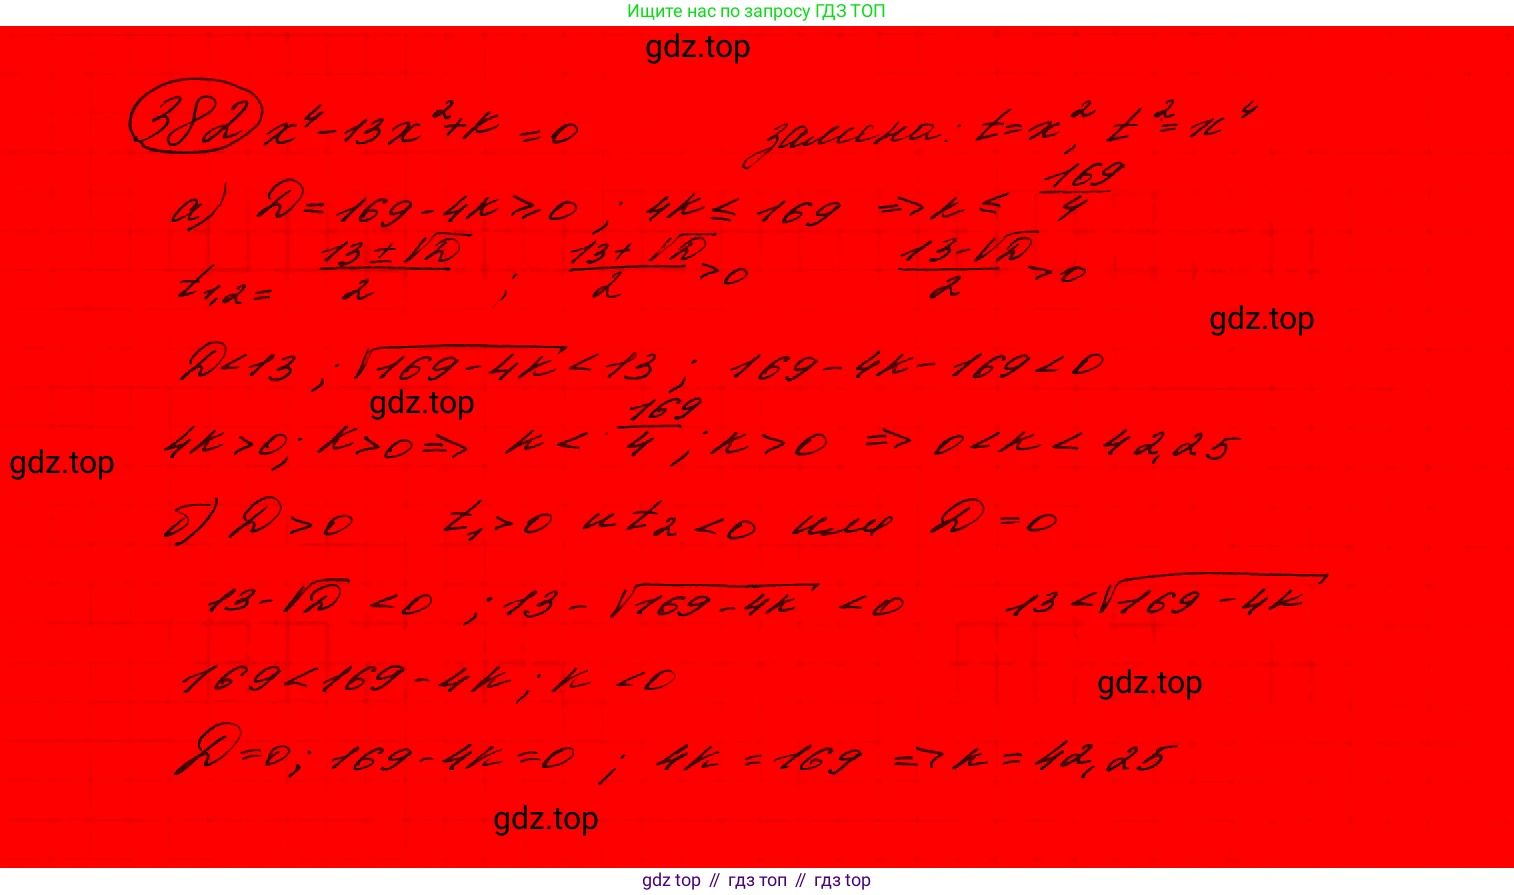 Ищите нас по запросу ГДЗ ТОП
gdz.top
382 x⁴ - 13x² + k = 0 замена: t = x², t² = x⁴
а) D = 169 - 4k ≥ 0 ; 4k ≤ 169 => k ≤ 169/4
t₁,₂ = (13 ± √D)/2 ; (13 + √D)/2 > 0 (13 - √D)/2 > 0
gdz.top
D < 13 ; √(169 - 4k) < 13 ; 169 - 4k - 169 < 0
gdz.top
4k > 0 ; k > 0 => k < 169/4 ; k > 0 => 0 < k < 42,25
gdz.top
б) D > 0 t₁ > 0 и t₂ < 0 или D = 0
13 - √D < 0 ; 13 - √(169 - 4k) < 0 13 < √(169 - 4k)
169 < 169 - 4k ; k < 0
gdz.top
D = 0 ; 169 - 4k = 0 ; 4k = 169 => k = 42,25
gdz.top
gdz top // гдз топ // gdz top